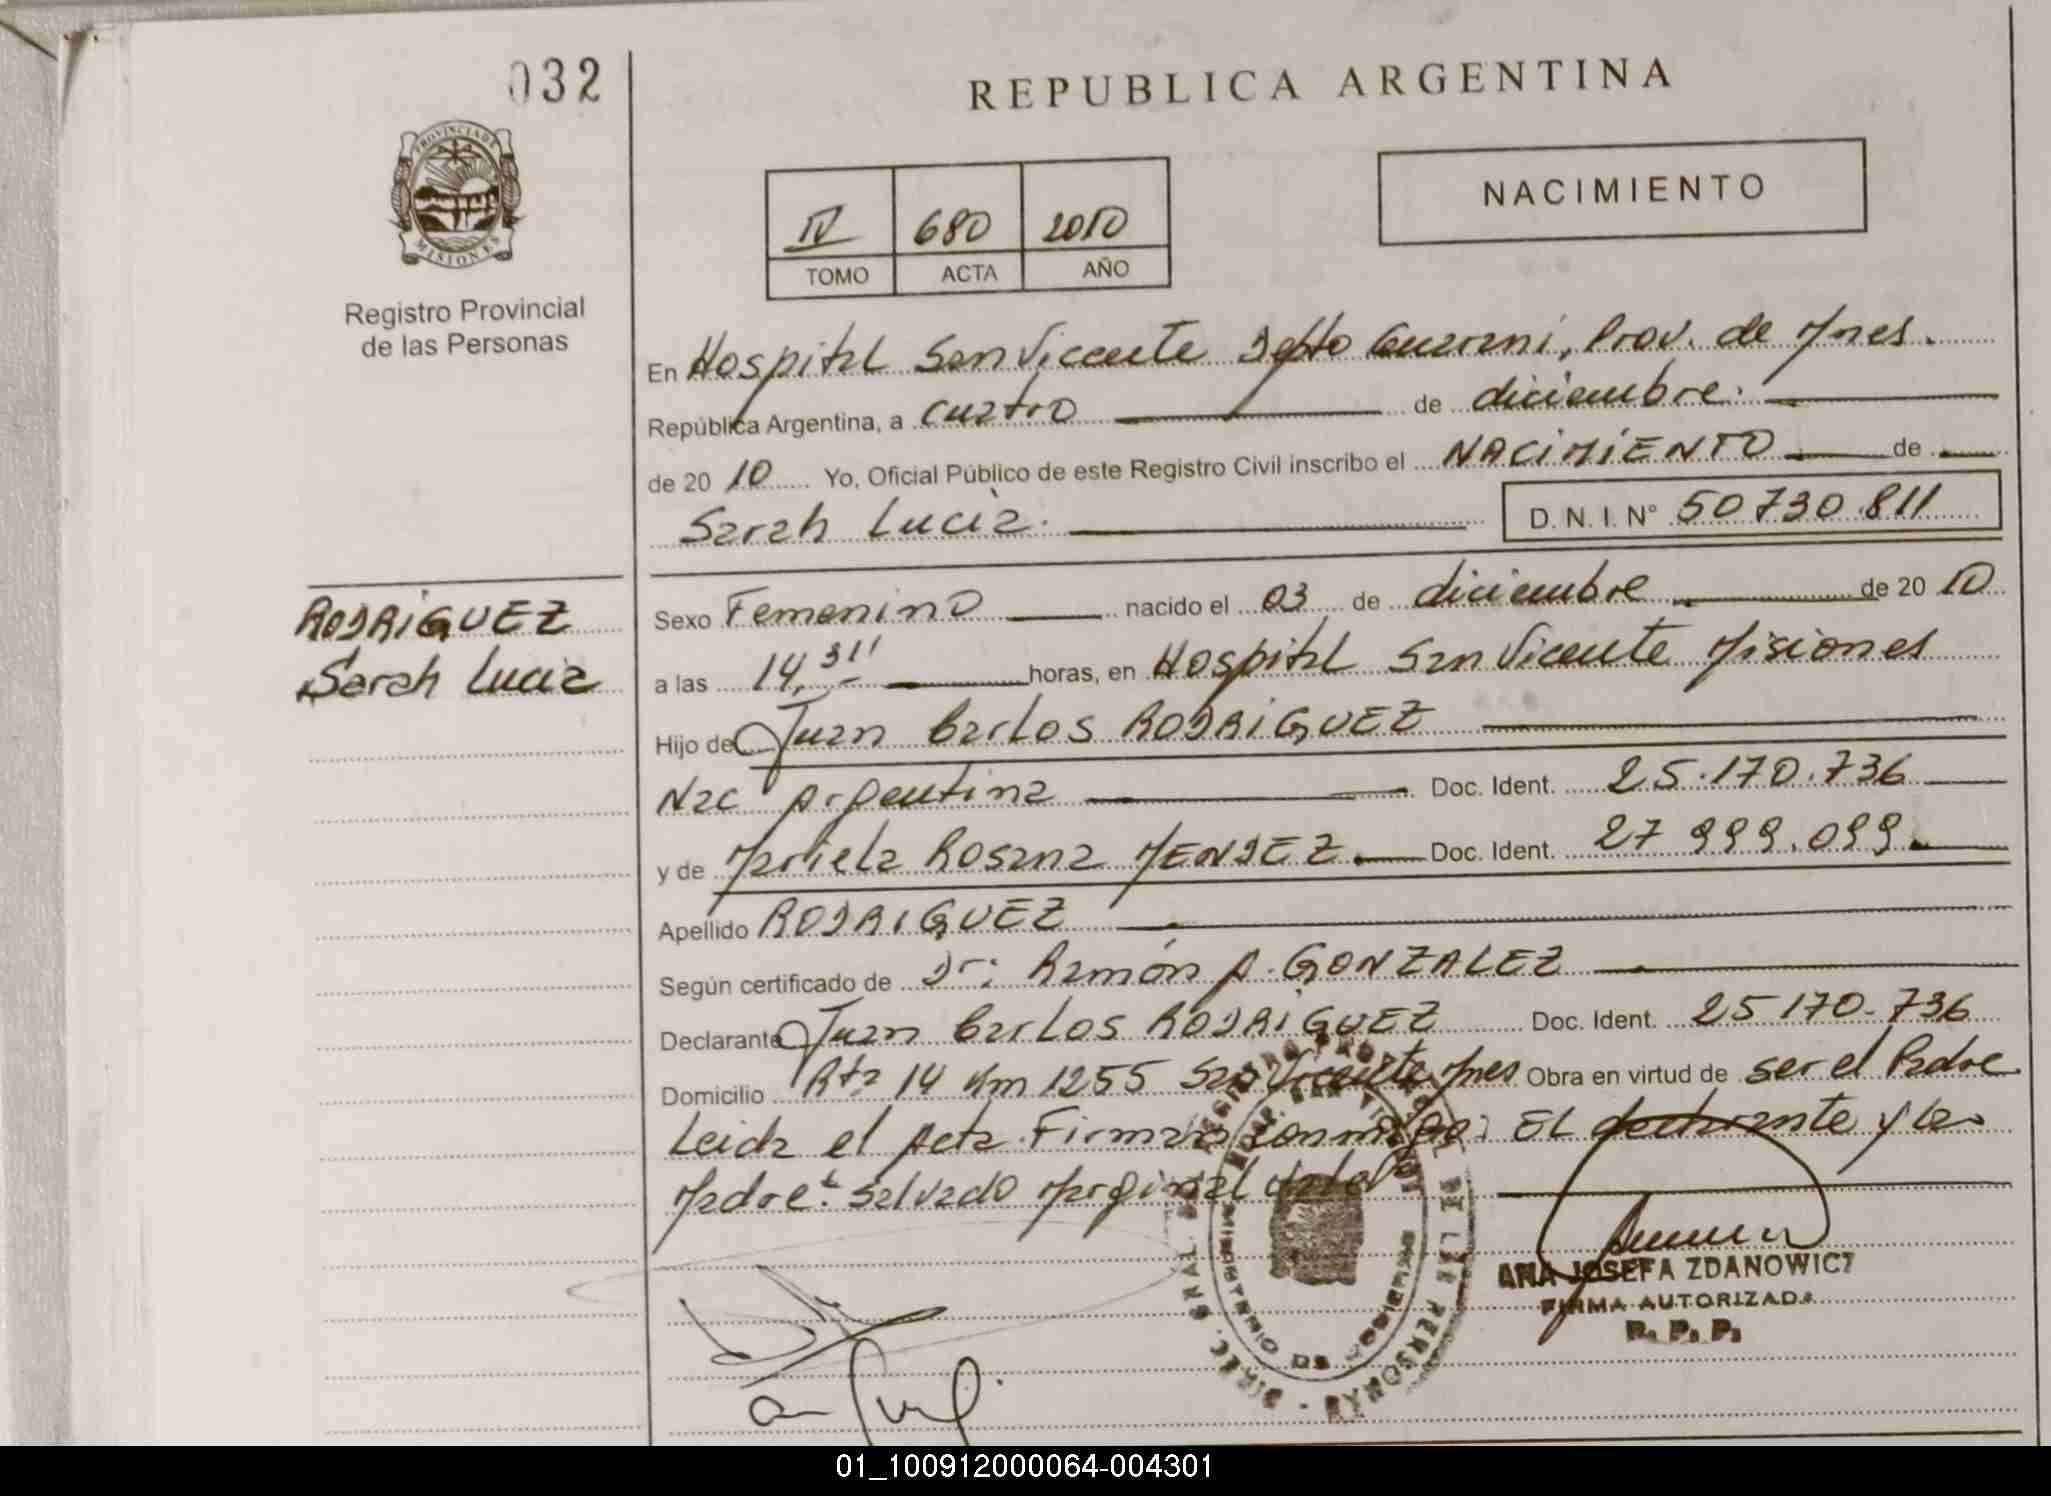 032
REPUBLICA ARGENTINA
PROVINCIA DE MISIONES
Registro Provincial
de las Personas
IV 680 2010
TOMO ACTA AÑO
NACIMIENTO
En Hospital San Vicente Dpto Guarani, Prov. de Mnes.
República Argentina, a cuatro de diciembre.
de 2010 Yo, Oficial Público de este Registro Civil inscribo el NACIMIENTO de
Sarah Lucía. D. N. I. N° 50730.811
RODRIGUEZ
Sarah Lucia
Sexo Femenino nacido el 03 de diciembre de 2010
a las 14,31" horas, en Hospital San Vicente Misiones
Hijo de Juan Carlos RODRIGUEZ
Nac Argentina Doc. Ident. 25.170.736
y de Mariela Rosana MENDEZ Doc. Ident. 27 999.099
Apellido RODRIGUEZ
Según certificado de Dr: Ramón A. GONZALEZ
Declarante Juan Carlos RODRIGUEZ Doc. Ident. 25 170.736
Domicilio Rta 14 Km 1255 San Vicente Mnes Obra en virtud de ser el Padre
Leida el Acta Firman conmigo: El declarante y la
Madre. Salvado Marginal
ANA JOSEFA ZDANOWICZ
FIRMA AUTORIZADA
R. P. P.
01_100912000064-004301